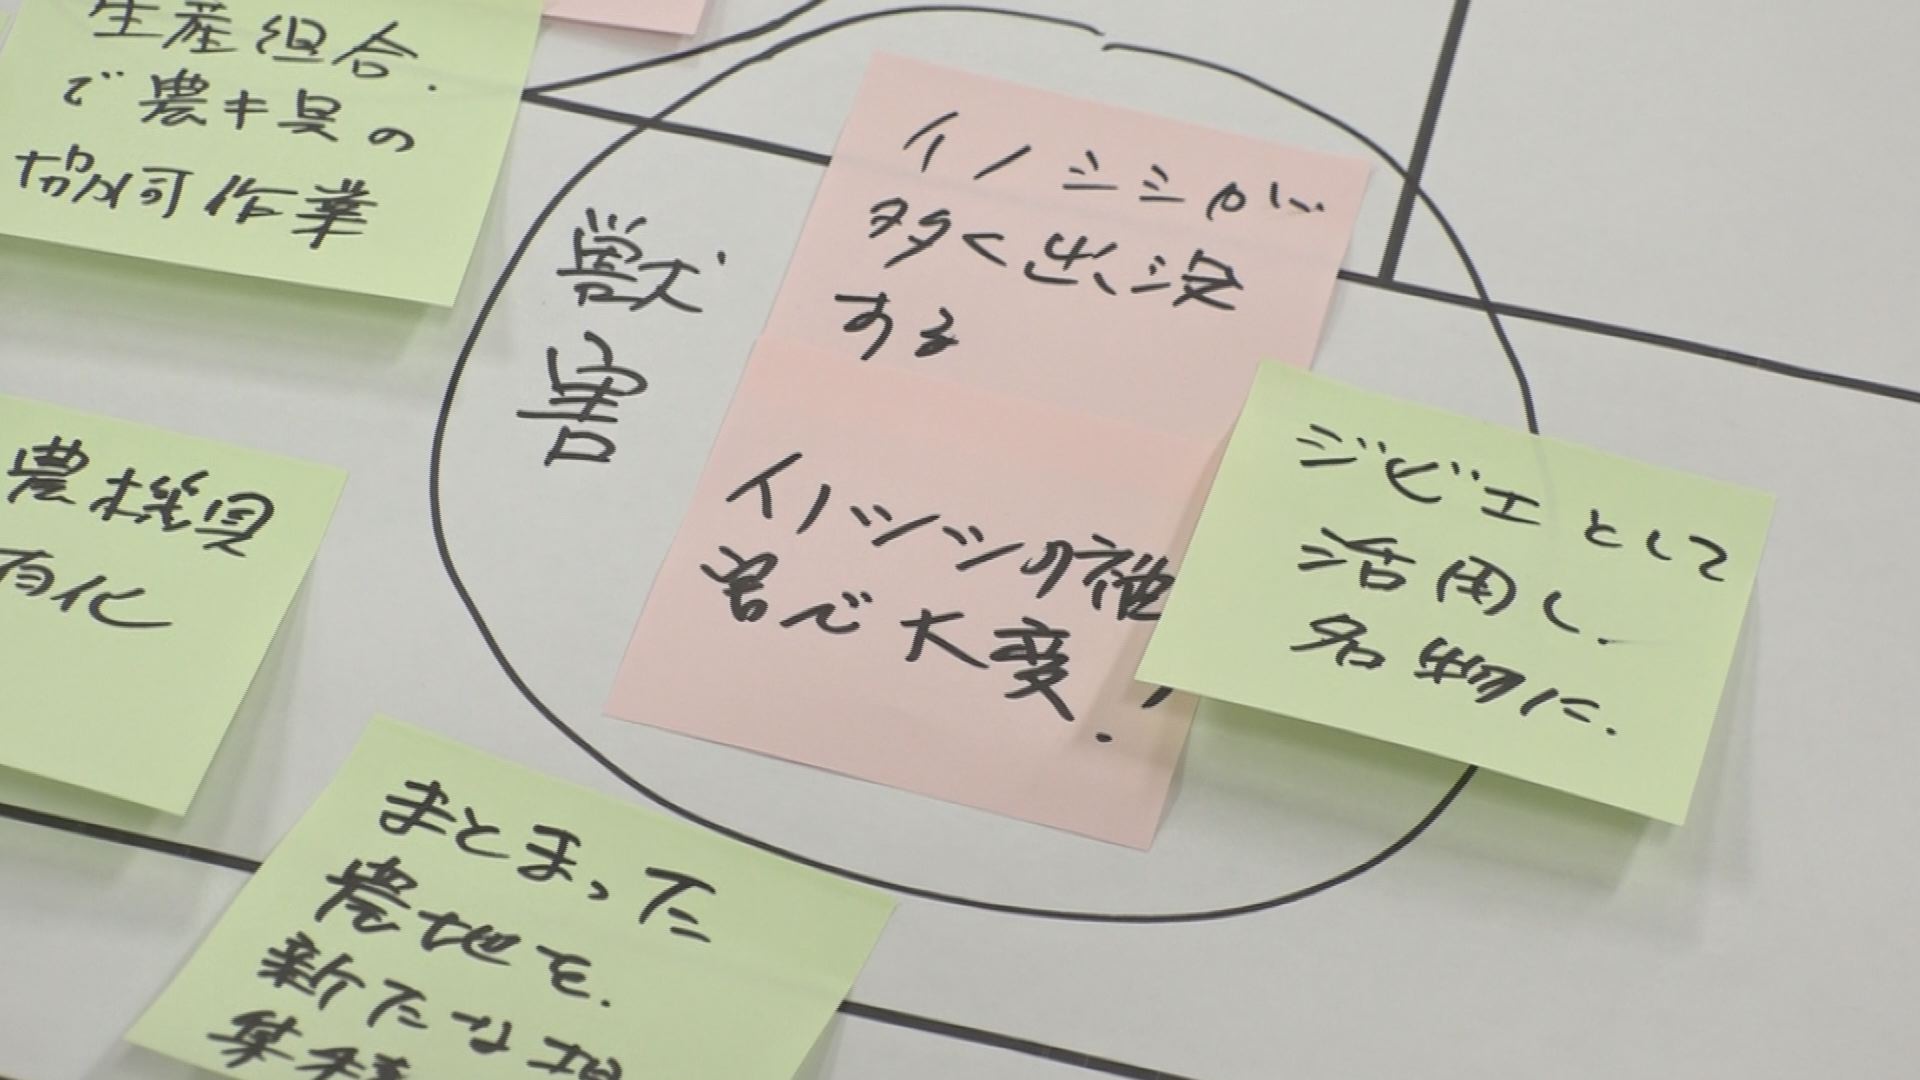 生産組合.
で農キ具の
協同作業
農機具
有化
獣
害
イノシシが
多く出没
する
イノシシの被
害で大変!
ジビエとして
活用し、
名物に.
まとまった
農地を.
新たな
集積